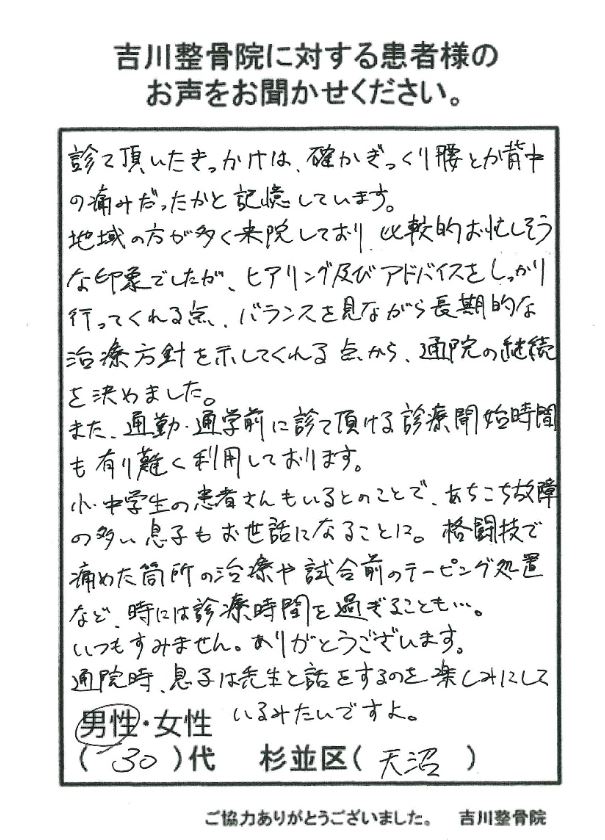 吉川整骨院に対する患者様の
お声をお聞かせください。
診て頂いたきっかけは、確かぎっくり腰とか背中
の痛みだったかと記憶しています。
地域の方が多く来院しており、比較的お忙しそう
な印象でしたが、ヒアリング及びアドバイスをしっかり
行ってくれる点、バランスを見ながら長期的な
治療方針を示してくれる点から、通院の継続
を決めました。
また、通勤・通学前に診て頂ける診療開始時間
も有り難く利用しております。
小・中学生の患者さんもいるとのことで、あちこち故障
の多い息子もお世話になることに。格闘技で
痛めた箇所の治療や試合前のテーピング処置
など、時には診療時間を過ぎることも…。
いつもすみません。ありがとうございます。
通院時、息子は先生と話をするのを楽しみにして
いるみたいですよ。
男性・女性
(30)代 杉並区(天沼)
ご協力ありがとうございました。 吉川整骨院